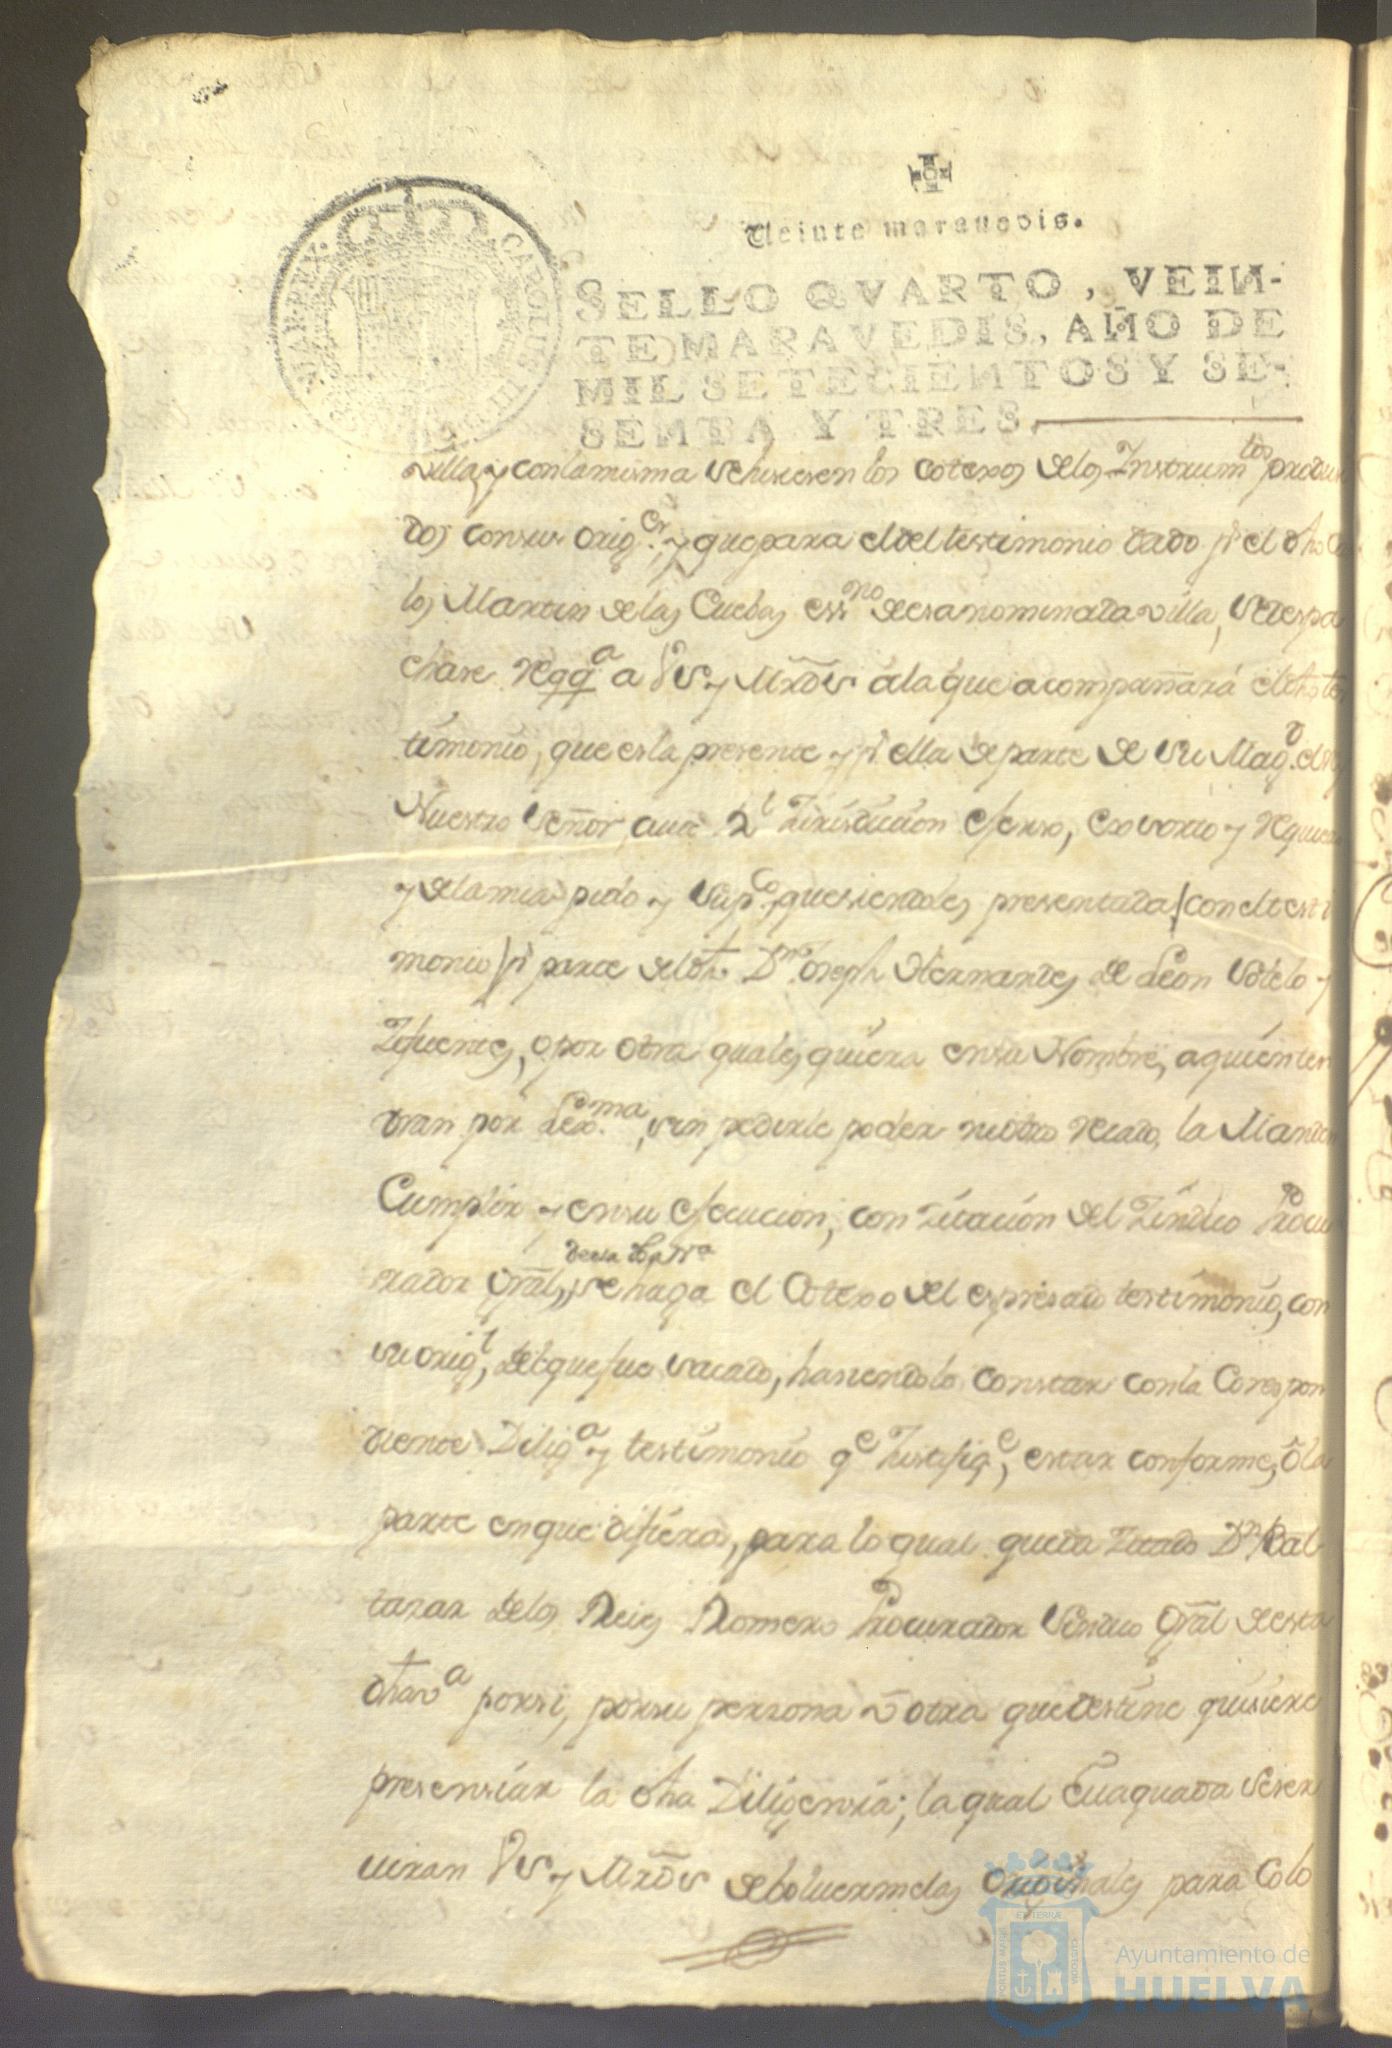 Veinte marauedis.
SELLO QVARTO, VEIN-
TE MARAVEDIS, AÑO DE
MIL SETECIENTOS Y SE-
SENTA Y TRES.
CAROLUS III HISPANIAR. REX.
villa, y con la misma se hisiesen los cotexos de los Instrum.tos produci
dos con sus orig.es, y que para el del testimonio dado p.r el dho Car
los Martin de las Cuebas ess.no de esa nominada villa, se despa
chase Reqq.a a VS y Mrd̃s â la que acompañará el dho tes
timonio, que es la presente y p.r ella de parte de su Mag.d el Rey
Nuestro Señor, cuia R.l Jurisdicion exerso, exsorto y Requiero
y de la mia pido y sup.co, que siendoles presentada (con el testi
monio) p.r parte del dho D.n Joseph Hernandes de Leon Sotelo y
Zifuentes, o por otra qualesquiera en su Nombre, a quien ten
dran por Lex.ma, sin pedirle poder ni otro recado, la Manden
Cumplir y en su esecucion, con Zitacion del Zindico Procu
rador Gr̃al, de esa dha V.a se haga el Cotexo del expresado testimonio, con
su orig.l, del que fue sacado, hasiendolo constar con la Correspon
diente Dilig.a y testimonio q.e Justifiq.e, estar conforme, ô la
parte en que difiera, para lo qual queda Zitado D.n Bal
tazar de los Reies Romero Procurador Sindico Gr̃al de esta
dha v.a por si, por su persona ù otra que destine quisiere
presensiar la dha Diligensia; la qual Euaquada se ser
uiran VS y Mrd̃s deboluermelas originales para Colo
PORTUS MARIS
ET TERRÆ
CUSTODIA
Ayuntamiento de
HUELVA